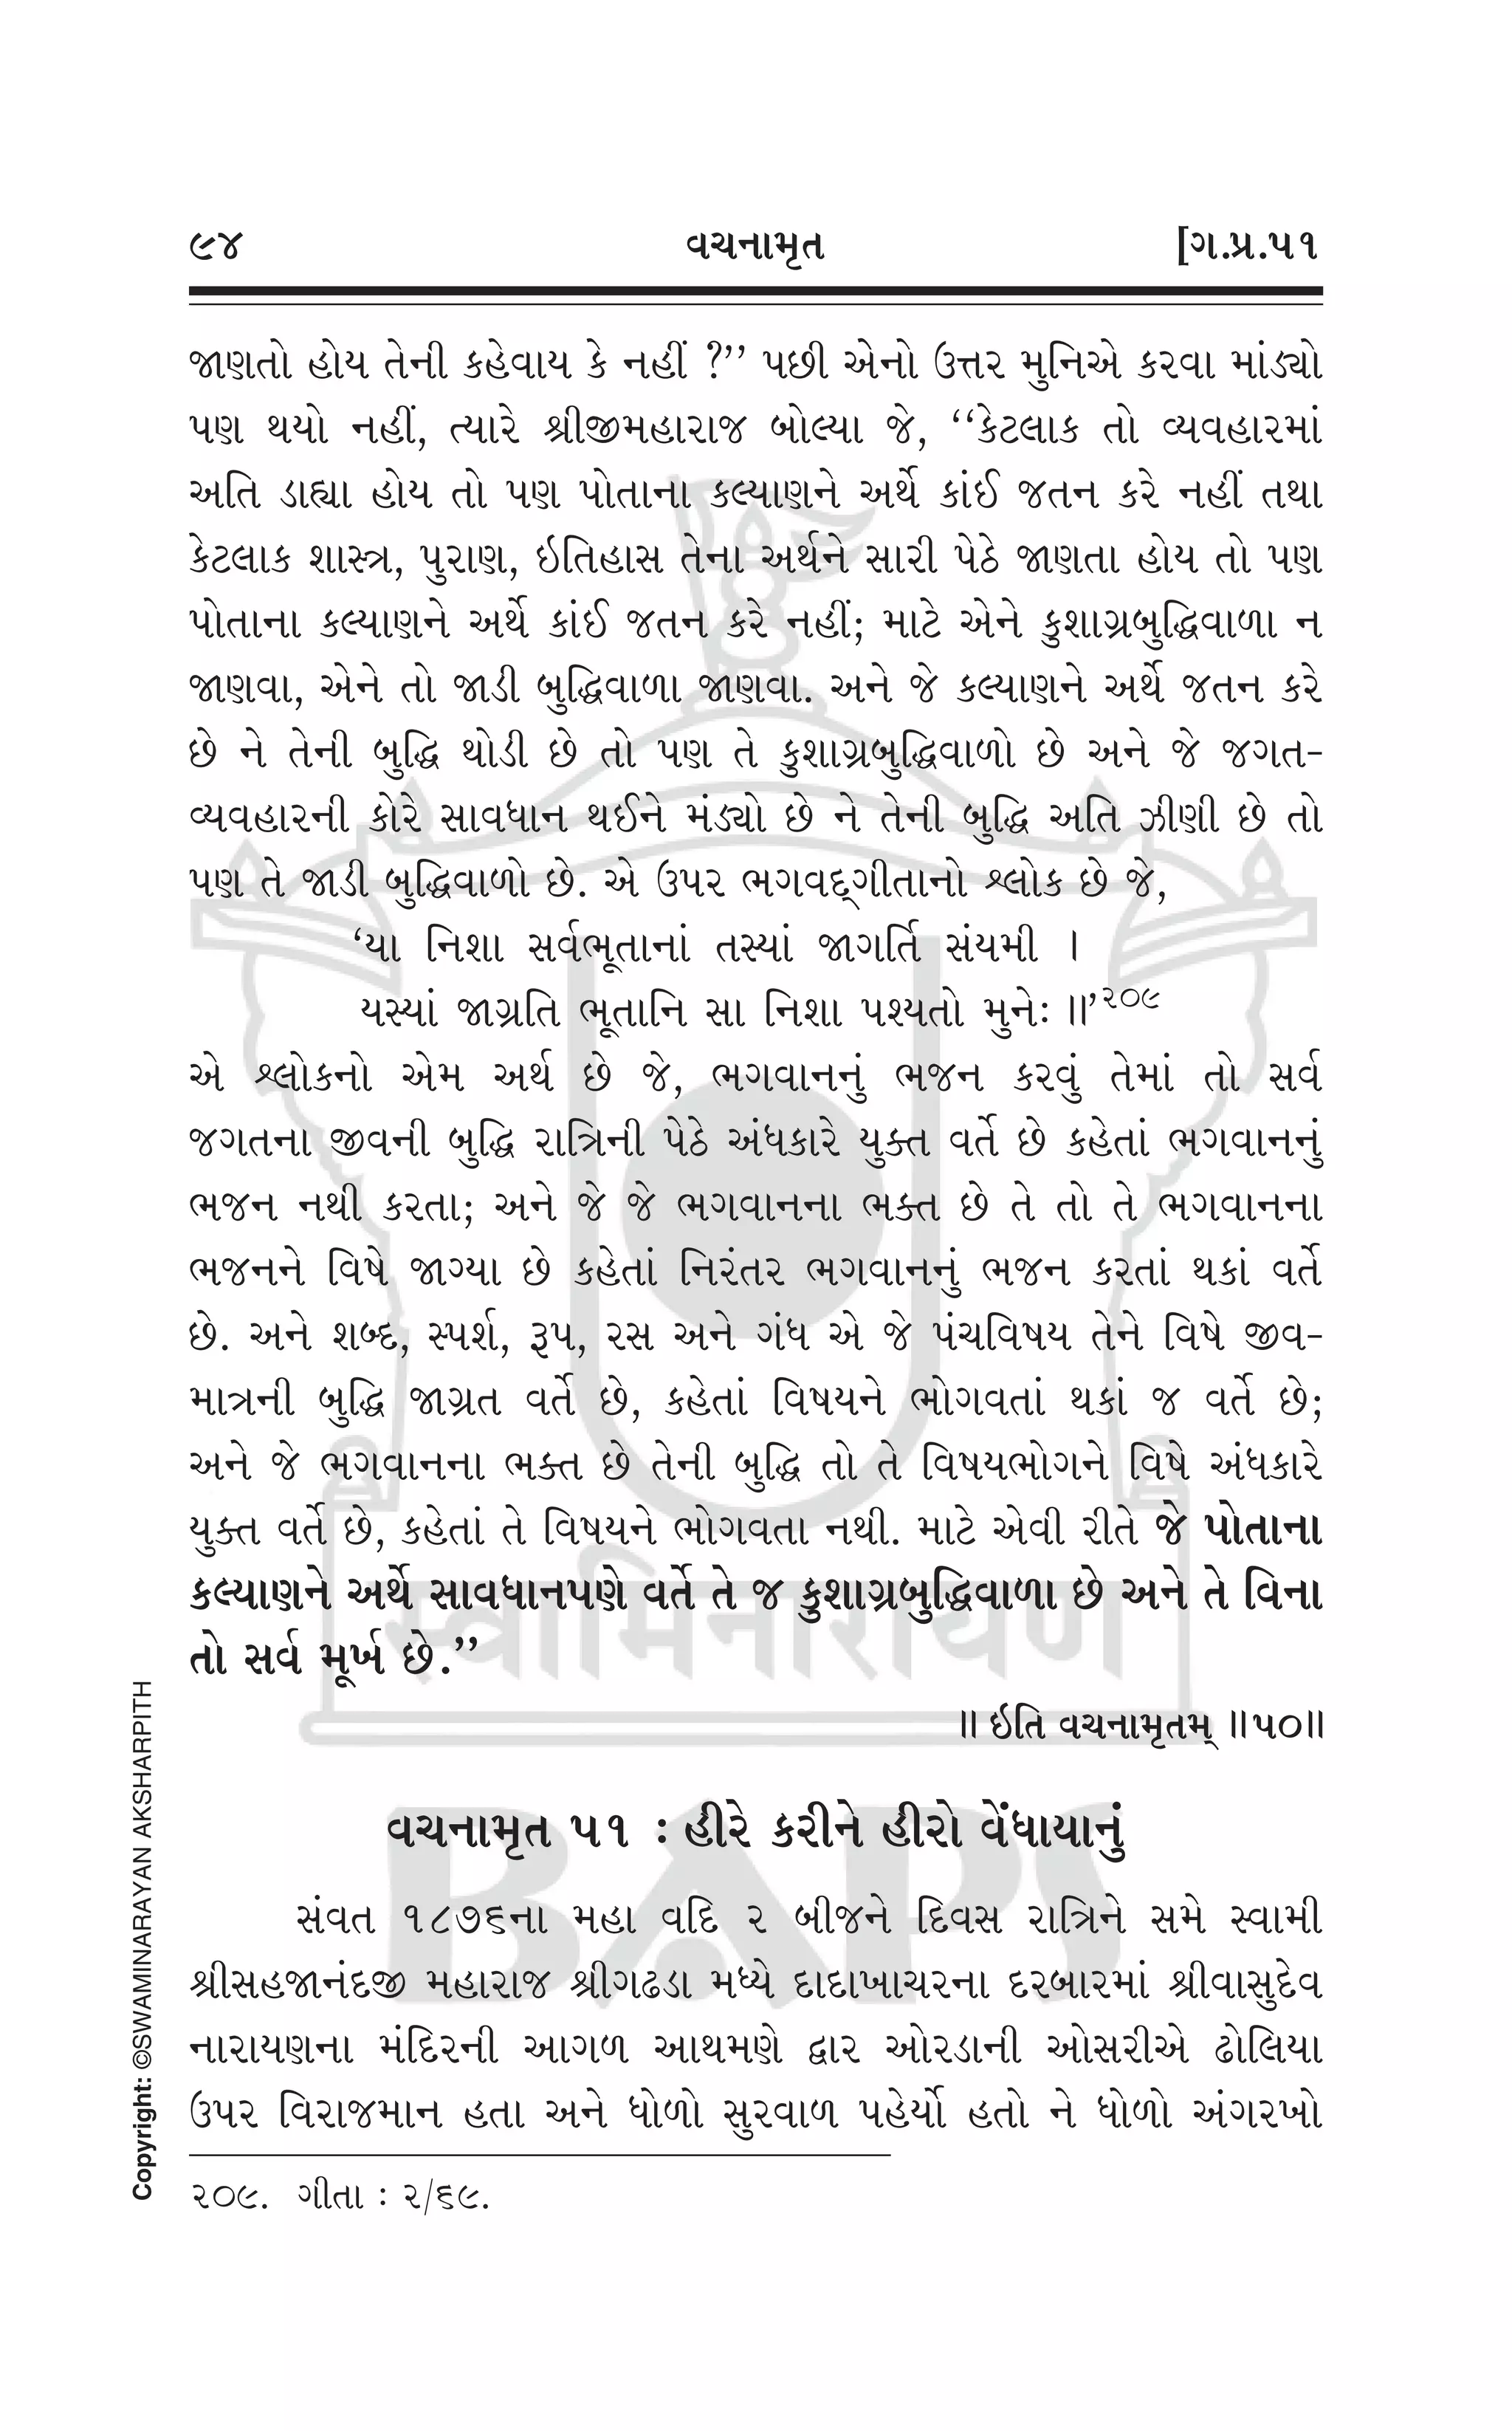 ૯૪ વચનામૃત [ગ.પ્ર.૫૧
જાણતો હોય તેની કહેવાય કે નહીં ?’’ પછી એનો ઉત્તર મુનિએ કરવા માંડ્યો
પણ થયો નહીં, ત્યારે શ્રીજીમહારાજ બોલ્યા જે, ‘‘કેટલાક તો વ્યવહારમાં
અતિ ડાહ્યા હોય તો પણ પોતાના કલ્યાણને અર્થે કાંઈ જતન કરે નહીં તથા
કેટલાક શાસ્ત્ર, પુરાણ, ઇતિહાસ તેના અર્થને સારી પેઠે જાણતા હોય તો પણ
પોતાના કલ્યાણને અર્થે કાંઈ જતન કરે નહીં; માટે એને કુશાગ્રબુદ્ધિવાળા ન
જાણવા, એને તો જાડી બુદ્ધિવાળા જાણવા. અને જે કલ્યાણને અર્થે જતન કરે
છે ને તેની બુદ્ધિ થોડી છે તો પણ તે કુશાગ્રબુદ્ધિવાળો છે અને જે જગત-
વ્યવહારની કોરે સાવધાન થઈને મંડ્યો છે ને તેની બુદ્ધિ અતિ ઝીણી છે તો
પણ તે જાડી બુદ્ધિવાળો છે. એ ઉપર ભગવદ્ગીતાનો શ્લોક છે જે,
‘યા નિશા સર્વભૂતાનાં તસ્યાં જાગર્તિ સંયમી ।
યસ્યાં જાગ્રતિ ભૂતાનિ સા નિશા પશ્યતો મુનેઃ ॥’૨૦૯
એ શ્લોકનો એમ અર્થ છે જે, ભગવાનનું ભજન કરવું તેમાં તો સર્વ
જગતના જીવની બુદ્ધિ રાત્રિની પેઠે અંધકારે યુક્ત વર્તે છે કહેતાં ભગવાનનું
ભજન નથી કરતા; અને જે જે ભગવાનના ભક્ત છે તે તો તે ભગવાનના
ભજનને વિષે જાગ્યા છે કહેતાં નિરંતર ભગવાનનું ભજન કરતાં થકાં વર્તે
છે. અને શબ્દ, સ્પર્શ, રૂપ, રસ અને ગંધ એ જે પંચવિષય તેને વિષે જીવ-
માત્રની બુદ્ધિ જાગ્રત વર્તે છે, કહેતાં વિષયને ભોગવતાં થકાં જ વર્તે છે;
અને જે ભગવાનના ભક્ત છે તેની બુદ્ધિ તો તે વિષયભોગને વિષે અંધકારે
યુક્ત વર્તે છે, કહેતાં તે વિષયને ભોગવતા નથી. માટે એવી રીતે જે પોતાના
કલ્યાણને અર્થે સાવધાનપણે વર્તે તે જ કુશાગ્રબુદ્ધિવાળા છે અને તે વિના
તો સર્વ મૂર્ખ છે.’’
॥ ઇતિ વચનામૃતમ્ ॥૫૦॥
स्वामिनारायण
BAPS
વચનામૃત ૫૧ : હીરે કરીને હીરો વેંધાયાનું
સંવત ૧૮૭૬ના મહા વદિ ૨ બીજને દિવસ રાત્રિને સમે સ્વામી
શ્રીસહજાનંદજી મહારાજ શ્રીગઢડા મધ્યે દાદાખાચરના દરબારમાં શ્રીવાસુદેવ
નારાયણના મંદિરની આગળ આથમણે દ્વાર ઓરડાની ઓસરીએ ઢોલિયા
ઉપર વિરાજમાન હતા અને ધોળો સુરવાળ પહેર્યો હતો ને ધોળો અંગરખો
૨૦૯. ગીતા : ૨/૬૯.
Copyright: ©SWAMINARAYAN AKSHARPITH